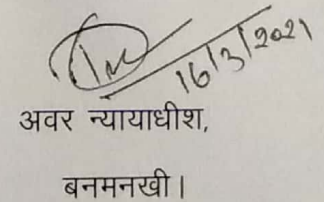 16/3/2021
अवर न्यायाधीश,
बनमनखी।